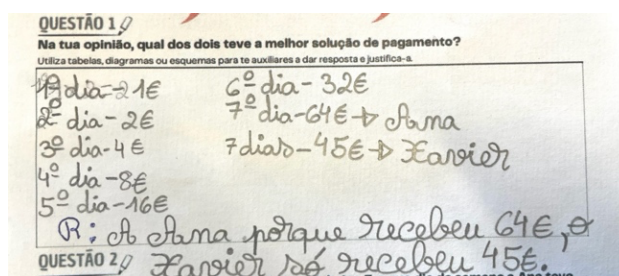 QUESTÃO 1
Na tua opinião, qual dos dois teve a melhor solução de pagamento?
Utiliza tabelas, diagramas ou esquemas para te auxiliares a dar resposta e justifica-a.
1º dia - 1€
2º dia - 2€
3º dia - 4€
4º dia - 8€
5º dia - 16€
6º dia - 32€
7º dia - 64€ → Ana
7 dias - 45€ → Xavier
R: A Ana porque recebeu 64€, o
Xavier só recebeu 45€.
QUESTÃO 2